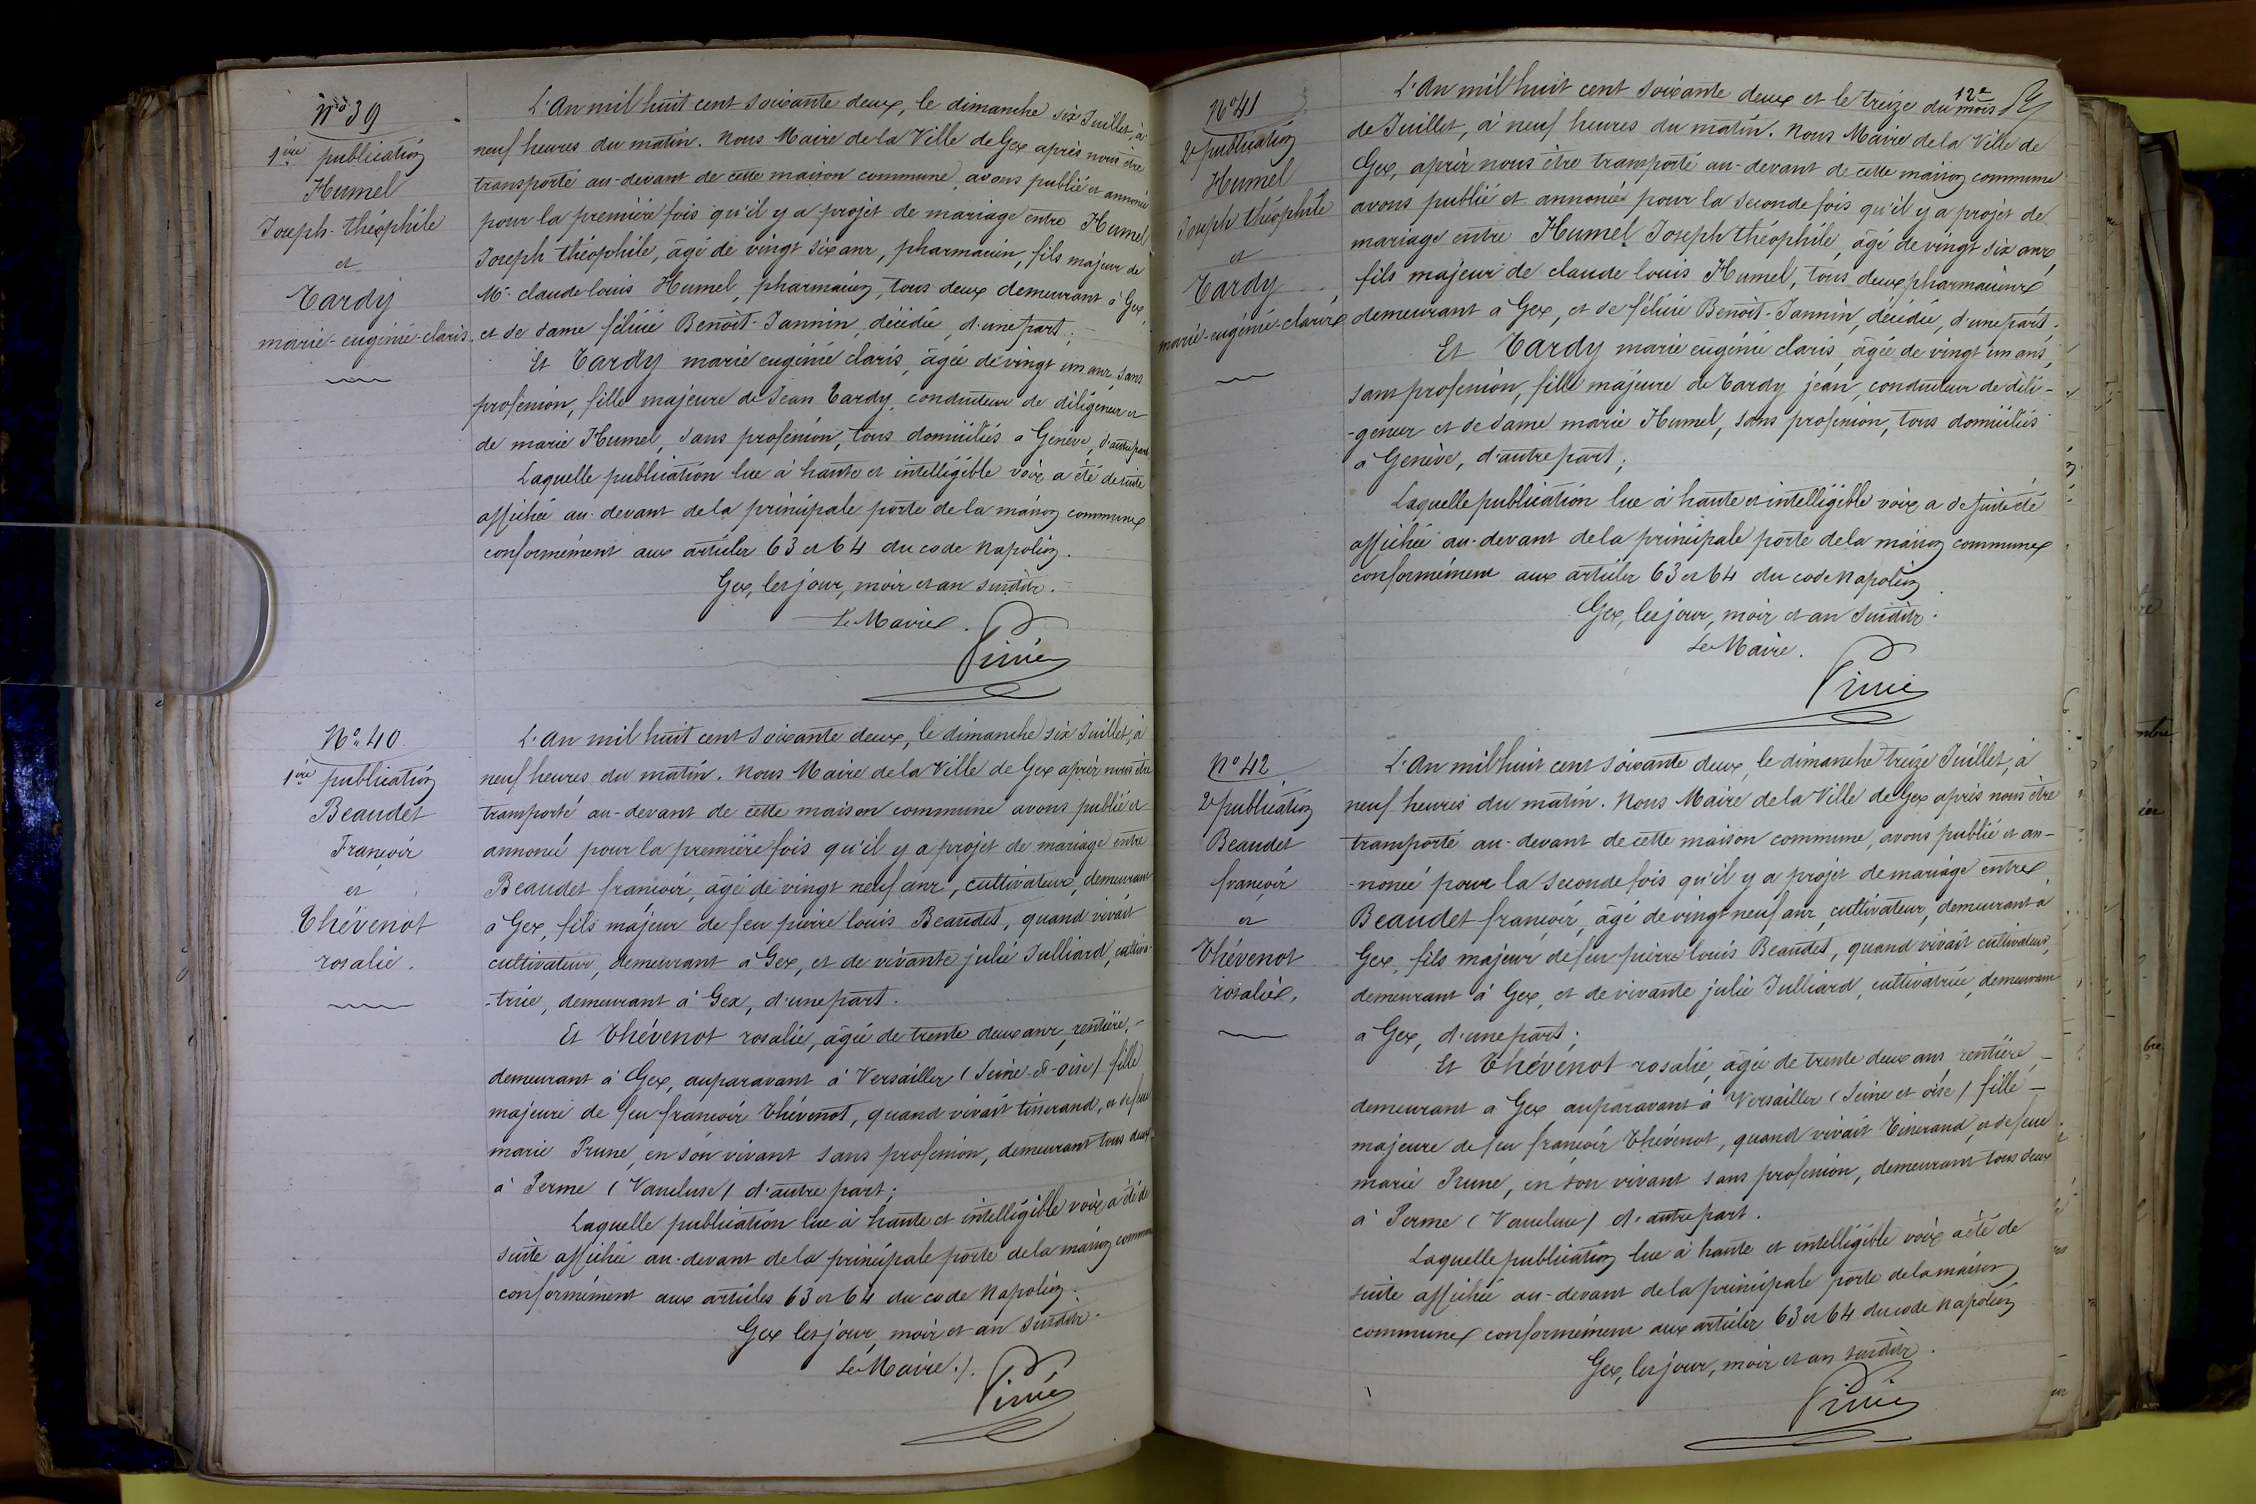 N° 39
1ère publication
Humel
Joseph-théophile
et
Tardy
marie-eugénie-claris.
L'An mil huit cent soixante deux, le dimanche six Juillet, à
neuf heures du matin. Nous Maire de la Ville de Gex après nous être
transporté au-devant de cette maison commune, avons publié et annoncé
pour la première fois qu'il y a projet de mariage entre Humel
Joseph théophile, âgé de vingt six ans, pharmacien, fils majeur de
Mr. claude louis Humel, pharmacien, tous deux demeurant à Gex,
et de dame félicie Benoît-Jannin, décédée, d'une part;
Et Tardy marie eugénie claris, âgée de vingt un ans, sans
profession, fille majeure de Jean Tardy, conducteur de diligences et
de marie Humel, sans profession, tous domiciliés à Genève, d'autre part
Laquelle publication lue à haute et intelligible voix a été de suite
affichée au-devant de la principale porte de la maison commune
conformément aux articles 63 et 64 du code Napoléon.
Gex, les jour, mois et an susdits.
Le Maire.
N° 40
1ère publication
Beaudet
François
et
Thévenot
rosalie.
L'An mil huit cent soixante deux, le dimanche six Juillet, à
neuf heures du matin. Nous Maire de la Ville de Gex après nous être
transporté au-devant de cette maison commune avons publié et
annoncé pour la première fois qu'il y a projet de mariage entre
Beaudet françois, âgé de vingt neuf ans, cultivateur, demeurant
à Gex, fils majeur de feu pierre louis Beaudet, quand vivait
cultivateur, demeurant à Gex, et de vivante julie Julliard, cultiva-
-trice, demeurant à Gex, d'une part.
Et Thévenot rosalie, âgée de trente deux ans, rentière,-
demeurant à Gex, auparavant à Versailles (Seine-et-oise) fille
majeure de feu françois Thévenot, quand vivait tisserand, et de feue
marie Prune, en son vivant sans profession, demeurant tous deux
à Perme (Vaucluse) d'autre part;
Laquelle publication lue à haute et intelligible voix a été de
suite affichée au-devant de la principale porte de la maison commune
conformément aux articles 63 et 64 du code Napoléon.
Gex les jour, mois et an susdits.
Le Maire.
N° 41
2e publication
Humel
Joseph théophile
et
Tardy
marie-eugénie-claris
L'An mil huit cent soixante deux et le treize du 12e mois
de Juillet, à neuf heures du matin. Nous Maire de la Ville de
Gex, après nous être transporté au-devant de cette maison commune
avons publié et annoncé, pour la seconde fois qu'il y a projet de
mariage entre Humel Joseph théophile, âgé de vingt six ans,
fils majeur de claude louis Humel, tous deux pharmaciens
demeurant à Gex, et de félicie Benoît-Jannin, décédée, d'une part.
Et Tardy marie eugénie claris, âgée de vingt un ans,
sans profession, fille majeure de Tardy jean, conducteur de dili-
-gences et de dame marie Humel, sans profession, tous domiciliés
à Genève, d'autre part;
Laquelle publication lue à haute et intelligible voix a de suite été
affichée au-devant de la principale porte de la maison commune
conformément aux articles 63 et 64 du code Napoléon
Gex, les jour, mois et an susdits.
Le Maire.
N° 42
2e publication
Beaudet
françois
et
Thévenot
rosalie,
L'An mil huit cent soixante deux, le dimanche treize Juillet, à
neuf heures du matin. Nous Maire de la Ville de Gex après nous être
transporté au-devant de cette maison commune, avons publié et an-
-noncé pour la seconde fois qu'il y a projet de mariage entre
Beaudet françois, âgé de vingt neuf ans, cultivateur, demeurant à
Gex, fils majeur de feu pierre louis Beaudet, quand vivait cultivateur,
demeurant à Gex, et de vivante julie Julliard, cultivatrice, demeurant
à Gex, d'une part;
Et Thévenot rosalie, âgée de trente deux ans, rentière,-
demeurant à Gex auparavant à Versailles (Seine et oise) fille-
majeure de feu françois Thévenot, quand vivait Tisserand, et de feue
marie Prune, en son vivant sans profession, demeurant tous deux
à Perme (Vaucluse) d'autre part.
Laquelle publication lue à haute et intelligible voix a été de
suite affichée au-devant de la principale porte de la maison
commune conformément aux articles 63 et 64 du code Napoléon
Gex, les jour, mois et an susdits.